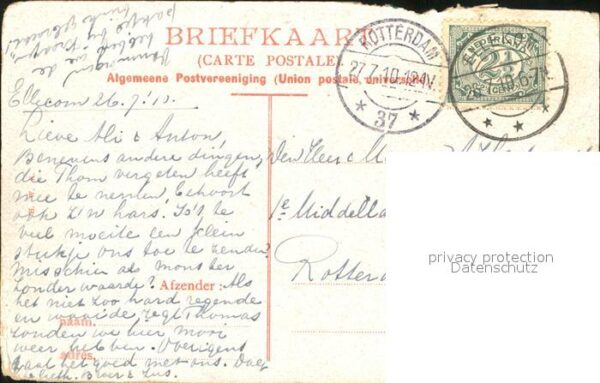 BRIEFKAAR
(CARTE POSTALE)
Algemeene Postvereeniging (Union postale universelle)
ROTTERDAM
27.7.10.12-1V.
* 37 *
Ellecom 26.7.'10.
Lieve Ali & Anton,
Benevens andere dingen,
die Thom vergeten heeft
mee te nemen, behoort
ook z'n hars. Is 't te
veel moeite een klein
stukje ons toe te zenden?
Misschien als monster
zonder waarde? Als
het niet zoo hard regende
en waaide, zegt Thomas
zouden we hier mooi
weer hebben. Overigens
gaat het goed met ons. Dag
Broer & Zus.
Afzender:
naam
adres
Den Heer & M
1e Middella
Rotterd
privacy protection
Datenschutz